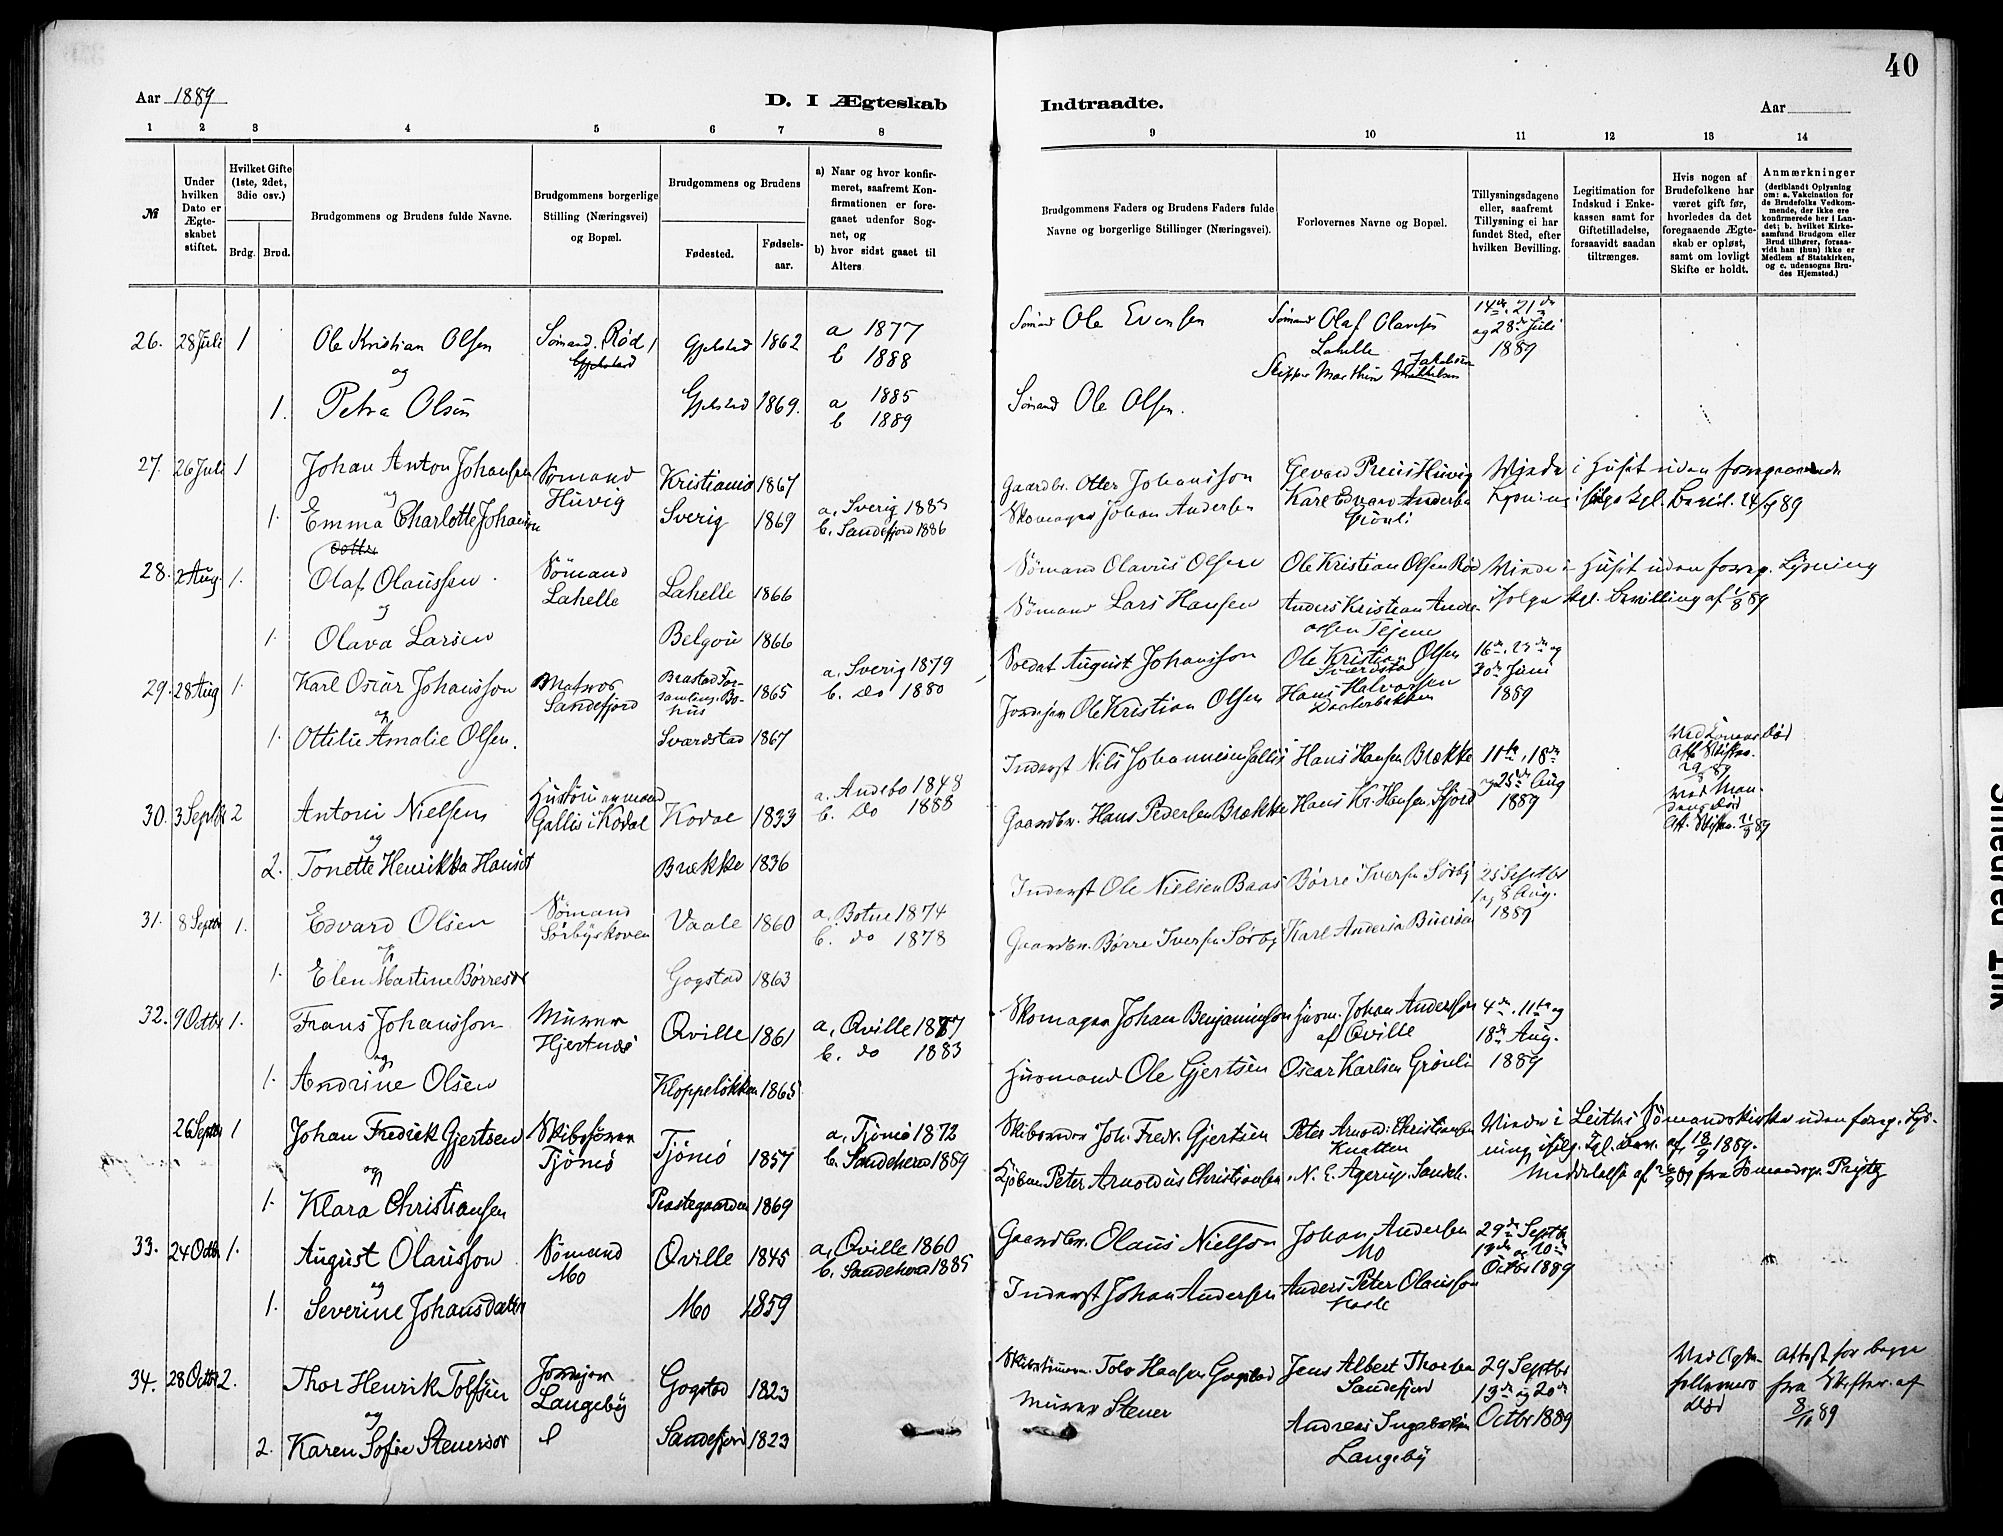 40
Aar 1889
D. I Ægteskab Indtraadte.
Aar
1 2 3 4 5 6 7 8 9 10 11 12 13 14
№
Under hvilken Dato er Ægteskabet stiftet.
Hvilket Gifte (1ste, 2det, 3die osv.)
Brdg. Brud.
Brudgommens og Brudens fulde Navne.
Brudgommens borgerlige Stilling (Næringsvei) og Bopæl.
Brudgommens og Brudens
Fødested. Fødselsaar.
a) Naar og hvor konfirmeret, saafremt Konfirmationen er foregaaet udenfor Sognet, og
b) hvor sidst gaaet til Alters
Brudgommens Faders og Brudens Faders fulde Navne og borgerlige Stillinger (Næringsvei).
Forlovernes Navne og Bopæl.
Tillysningsdagene eller, saafremt Tillysning ei har fundet Sted, efter hvilken Bevilling.
Legitimation for Indskud i Enkekassen samt for Giftetilladelse, forsaavidt saadan tiltrænges.
Hvis nogen af Brudefolkene har været gift før, hvorledes da det foregaaende Ægteskab er opløst, samt om lovligt Skifte er holdt.
Anmærkninger (deriblandt Oplysning om: a. Vakcination for de Brudefolks Vedkommende, der ikke ere konfirmerede her i Landet; b. hvilket Kirkesamfund Brudgom eller Brud tilhører, forsaavidt han (hun) ikke er Medlem af Statskirken, og c. udensogns Brudes Hjemsted.)
26. 28 Juli 1 Ole Kristian Olsen Sømand. Rød Gjelstad 1862 a 1877 b 1888 Sømand Ole Evensen Sømand Olaf Olausen Lahelle 14de, 21de og 28de Juli 1889
og
1. Petra Olsen Gjelstad 1869. a 1885 b 1889 Sømand Ole Olsen. Skipper Marthin Jakobsen
27. 26 Juli 1 Johan Anton Johansen Sømand Huvig Kristiania 1867 Gaardbr. Otter Johansson Gevard Preus Huvig Viede i Huset uden foregaaende
og
1. Emma Charlotte Johansen Sverig 1869 a. Sverig 1885 b. Sandefjord 1886 Skomager Johan Andersen Karl Edvard Andersen Grönli Lysning ifølge kgl. Bevil.
28. 2 Aug. 1. Olaf Olaussen Sömand Lahelle Lahelle 1866 Sömand Olavus Olsen Ole Kristian Olsen Rød Viede i Huset uden foreg. Lysning
og
1. Olava Larsen Belgau 1866 Sömand Lars Hansen Anders Kristian Andreassen Tejene ifølge kgl. Bevilling af 1/8 89
29. 28 Aug 1. Karl Oscar Johansson Matros Sandefjord 1865 a. Sverig 1879 b. do 1880 Soldat August Johansson Ole Kristian Olsen Sværdstad 16de, 23de og 30te Juni 1889
og
1. Ottilie Amalie Olsen. Sværdstad 1867 Jordejer Ole Kristian Olsen Hans Halvorsen
30. 3 Septbr 2 Antoni Nielsen Husfönermand Gallis i Kodal Kodal 1833 a. Andebo 1848 b. do 1888 Inderst Nils Johannesen Gallis Hans Hansen Brække 11te, 18de og 25de Aug 1889
og
2. Tonette Henrikka Hansdt Brække 1836 Gaardbr. Hans Pedersen Brække Hans Kr. Hansen Fjord
31. 8 Septbr 1. Edvard Olsen Sömand Sörbyskoven Vaale 1860 a. Botne 1874 b. do 1878 Inderst Ole Nielsen Baas Börre Iversen Sörby 25 Septbr 1 og 8 Aug. 1889
og
1. Elen Martine Börresdt Gogstad 1863 Gaardbr. Börre Iversen Sörby Karl Andersen
32. 9 Octbr 1. Frans Johansson Murer Hjertnes Qville 1861 a. Qville 1877 b. do 1883 Skomager Johan Benjaminson Husm. Johan Andersson af Qville 4de, 11te og 18de Aug. 1889
og
1. Andrine Olsen Kloppeløkken 1865 Husmand Ole Gjertsen Oscar Karlsen Grönli
26 Septbr 1 Johan Fredrik Gjertsen Skibsförer Tjömö Tjömö 1857 a. Tjömö 1872 b. Sandeherred 1889 Skibsreder Joh. Fredr. Gjertsen Peter Arnold Christiansen Knatten Viede i Leiths Sömandskirke uden foreg. Lysning ifölg. kgl. Bev. af 18/9 1889.
og
1. Klara Christiansen Prestegaarden 1869 Kjöbm. Peter Arnoldus Christiansen N. E. Agerup Sandeh. Meddelelse af fra Sömandspr. Prytz
33. 24 Octbr 1. August Olausson Sömand Mo Qville 1845 a. Qville 1860 b. Sandeherred 1885 Gaardbr. Olaus Nielson Johan Andersen Mo 29de Septbr 13de og 20de Octbr 1889
og
1. Severine Johansdatter Mo 1859 Inderst Johan Andersen Anders Peter Olausson
34. 28 Octbr 2. Thor Henrik Tolfsen Jordejer Langeby Gogstad 1823 Skibstömmer. Tolv Hansen Gogstad Jens Albert Thorsen Sandefjord 29 Septbr 13de og 20de Octbr 1889 Ved Ægtefellernes Död Attest for begge fra Skifter. af 8/10 89
og
2. Karen Sofie Stenersdt Sandefjord 1823 Murer Stener Andreas Ingebretsen Langeby